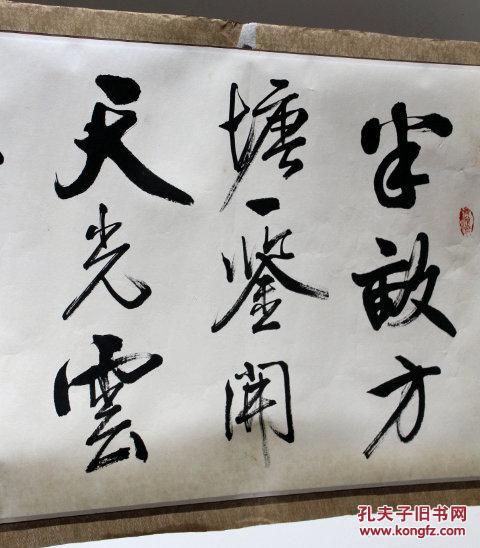 半畝方
塘一鑒開
天光雲
孔夫子旧书网
www.kongfz.com